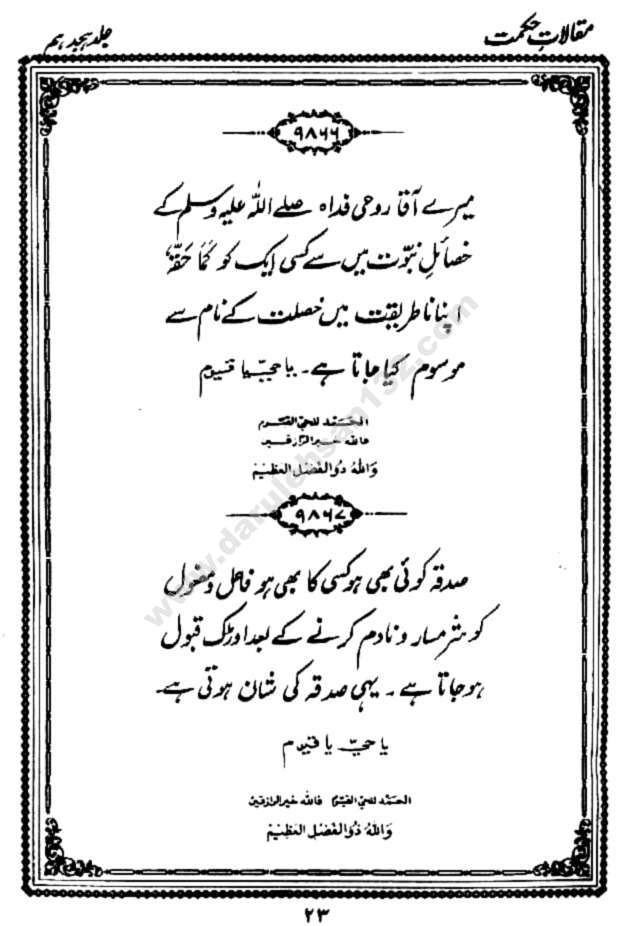 مقالاتِ حکمت
جلد ہجدہم
۹۸۶۶
میرے آقا روحی فداہ صلے اللہ علیہ وسلم کے
خصائلِ نبوّت میں سے کسی ایک کو کَمَا حَقَّہٗ
اپنانا طریقت میں خصلت کے نام سے
موسوم کیا جاتا ہے۔ یا حیّ یا قیّوم
الحَمْد للحیّ القیّوم
فاللہ خیر الرّازقین
وَاللہُ ذُو الفَضْلِ العَظِیْمِ
۹۸۶۷
صدقہ کوئی بھی ہو کسی کا بھی ہو فاعل و مفعول
کو شرمسار و نادم کرنے کے بعد اوڑک قبول
ہو جاتا ہے۔ یہی صدقہ کی شان ہوتی ہے۔
یا حیّ یا قیّوم
الحَمْد للحیّ القیّوم فاللہ خیر الرازقین
وَاللہُ ذُو الفَضْلِ العَظِیْمِ
۲۳
www.darulehsan132.com